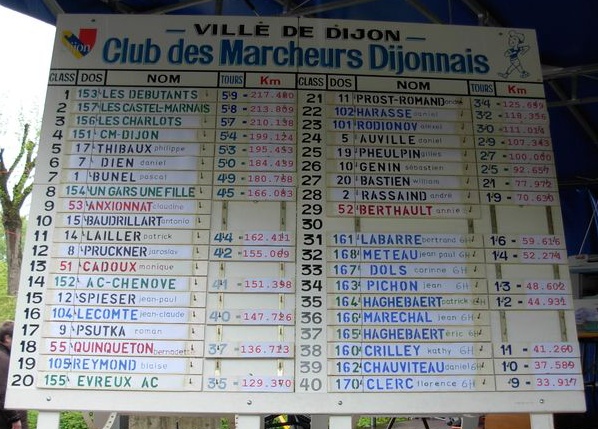 VILLE DE DIJON
Dijon
Club des Marcheurs Dijonnais
CLASS DOS NOM TOURS Km
1 153 LES DEBUTANTS 59 217.480
2 157 LES CASTEL-MARNAIS 58 213.809
3 156 LES CHARLOTS 57 210.138
4 151 CM-DIJON 54 199.124
5 17 THIBAUX philippe 53 195.453
6 7 DIEN daniel 50 184.439
7 1 BUNEL pascal 49 180.768
8 154 UN GARS UNE FILLE 45 166.083
9 53 ANXIONNAT claudine
10 15 BAUDRILLART antonio
11 14 LAILLER patrick 44 162.411
12 8 PRUCKNER jaroslav 42 155.069
13 51 CADOUX monique
14 152 AC-CHENOVE 41 151.398
15 12 SPIESER jean-paul
16 104 LECOMTE jean-claude 40 147.726
17 9 PSUTKA roman
18 55 QUINQUETON bernadette 37 136.713
19 105 REYMOND blaise
20 155 EVREUX AC 35 129.370
CLASS DOS NOM TOURS Km
21 11 PROST-ROMAND 34 125.699
22 102 HARASSE daniel 32 118.356
23 101 RODIONOV alexei 30 111.014
24 5 AUVILLE daniel 29 107.343
25 19 PHEULPIN gilles 27 100.000
26 10 GENIN sebastien 25 92.657
27 20 BASTIEN william 21 77.972
28 2 RASSAIND andré 19 70.630
29 52 BERTHAULT annie
30
31 161 LABARRE bertrand 6H 16 59.616
32 168 METEAU jean paul 6H 14 52.274
33 167 DOLS corinne 6H
34 163 PICHON jean 6H 13 48.602
35 164 HAGHEBAERT patrick 6H 12 44.931
36 166 MARECHAL jean 6H
37 165 HAGHEBAERT éric 6H
38 160 CRILLEY kathy 6H 11 41.260
39 162 CHAUVITEAU daniel 6H 10 37.589
40 170 CLERC florence 6H 9 33.917